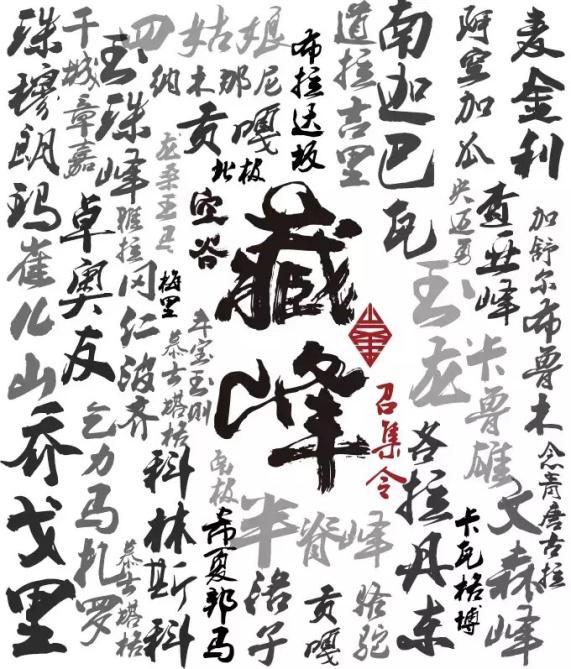 珠穆朗玛
干城章嘉
玉珠峰
四姑娘
纳木那尼
贡嘎
布拉达坂
道拉吉里
南迦巴瓦
阿空加瓜
麦金利
北坂
空谷
龙桑玉卫
雅拉
央迈勇
查亚峰
加舒尔布鲁木
崔儿山
卓奥友
冈仁波齐
梅里
藏峰
召集令
玉龙
卡鲁雄
乔戈里
乞力马扎罗
慕士塔格
科林斯科
慕士塔格
南板
希夏邦马
半脊峰
洛子
贡嘎
骆驼
各拉丹东
卡瓦格博
文森峰
念青唐古拉